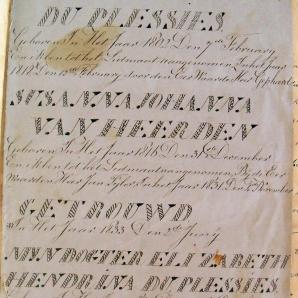 DU PLESSIES
Geboren In Het Jaar 1803 Den 7de February
En is Een tot het Lidmaat aangenomen In het Jaar
1818 Den 12de February door den Eer Waarde Heer
SUSANNA JOHANNA
VAN HEERDEN
Geboren In Het Jaar 1816 Den 31ste December
En is Een tot het Lidmaat aangenomen By de Eer
Waarden Heer In het Jaar 1831 Den 8 November
GETROUWD
In Het Jaar 1833 Den 2de Juny
MYN DOGTER ELIZABETH
HENDRINA DU PLESSIES